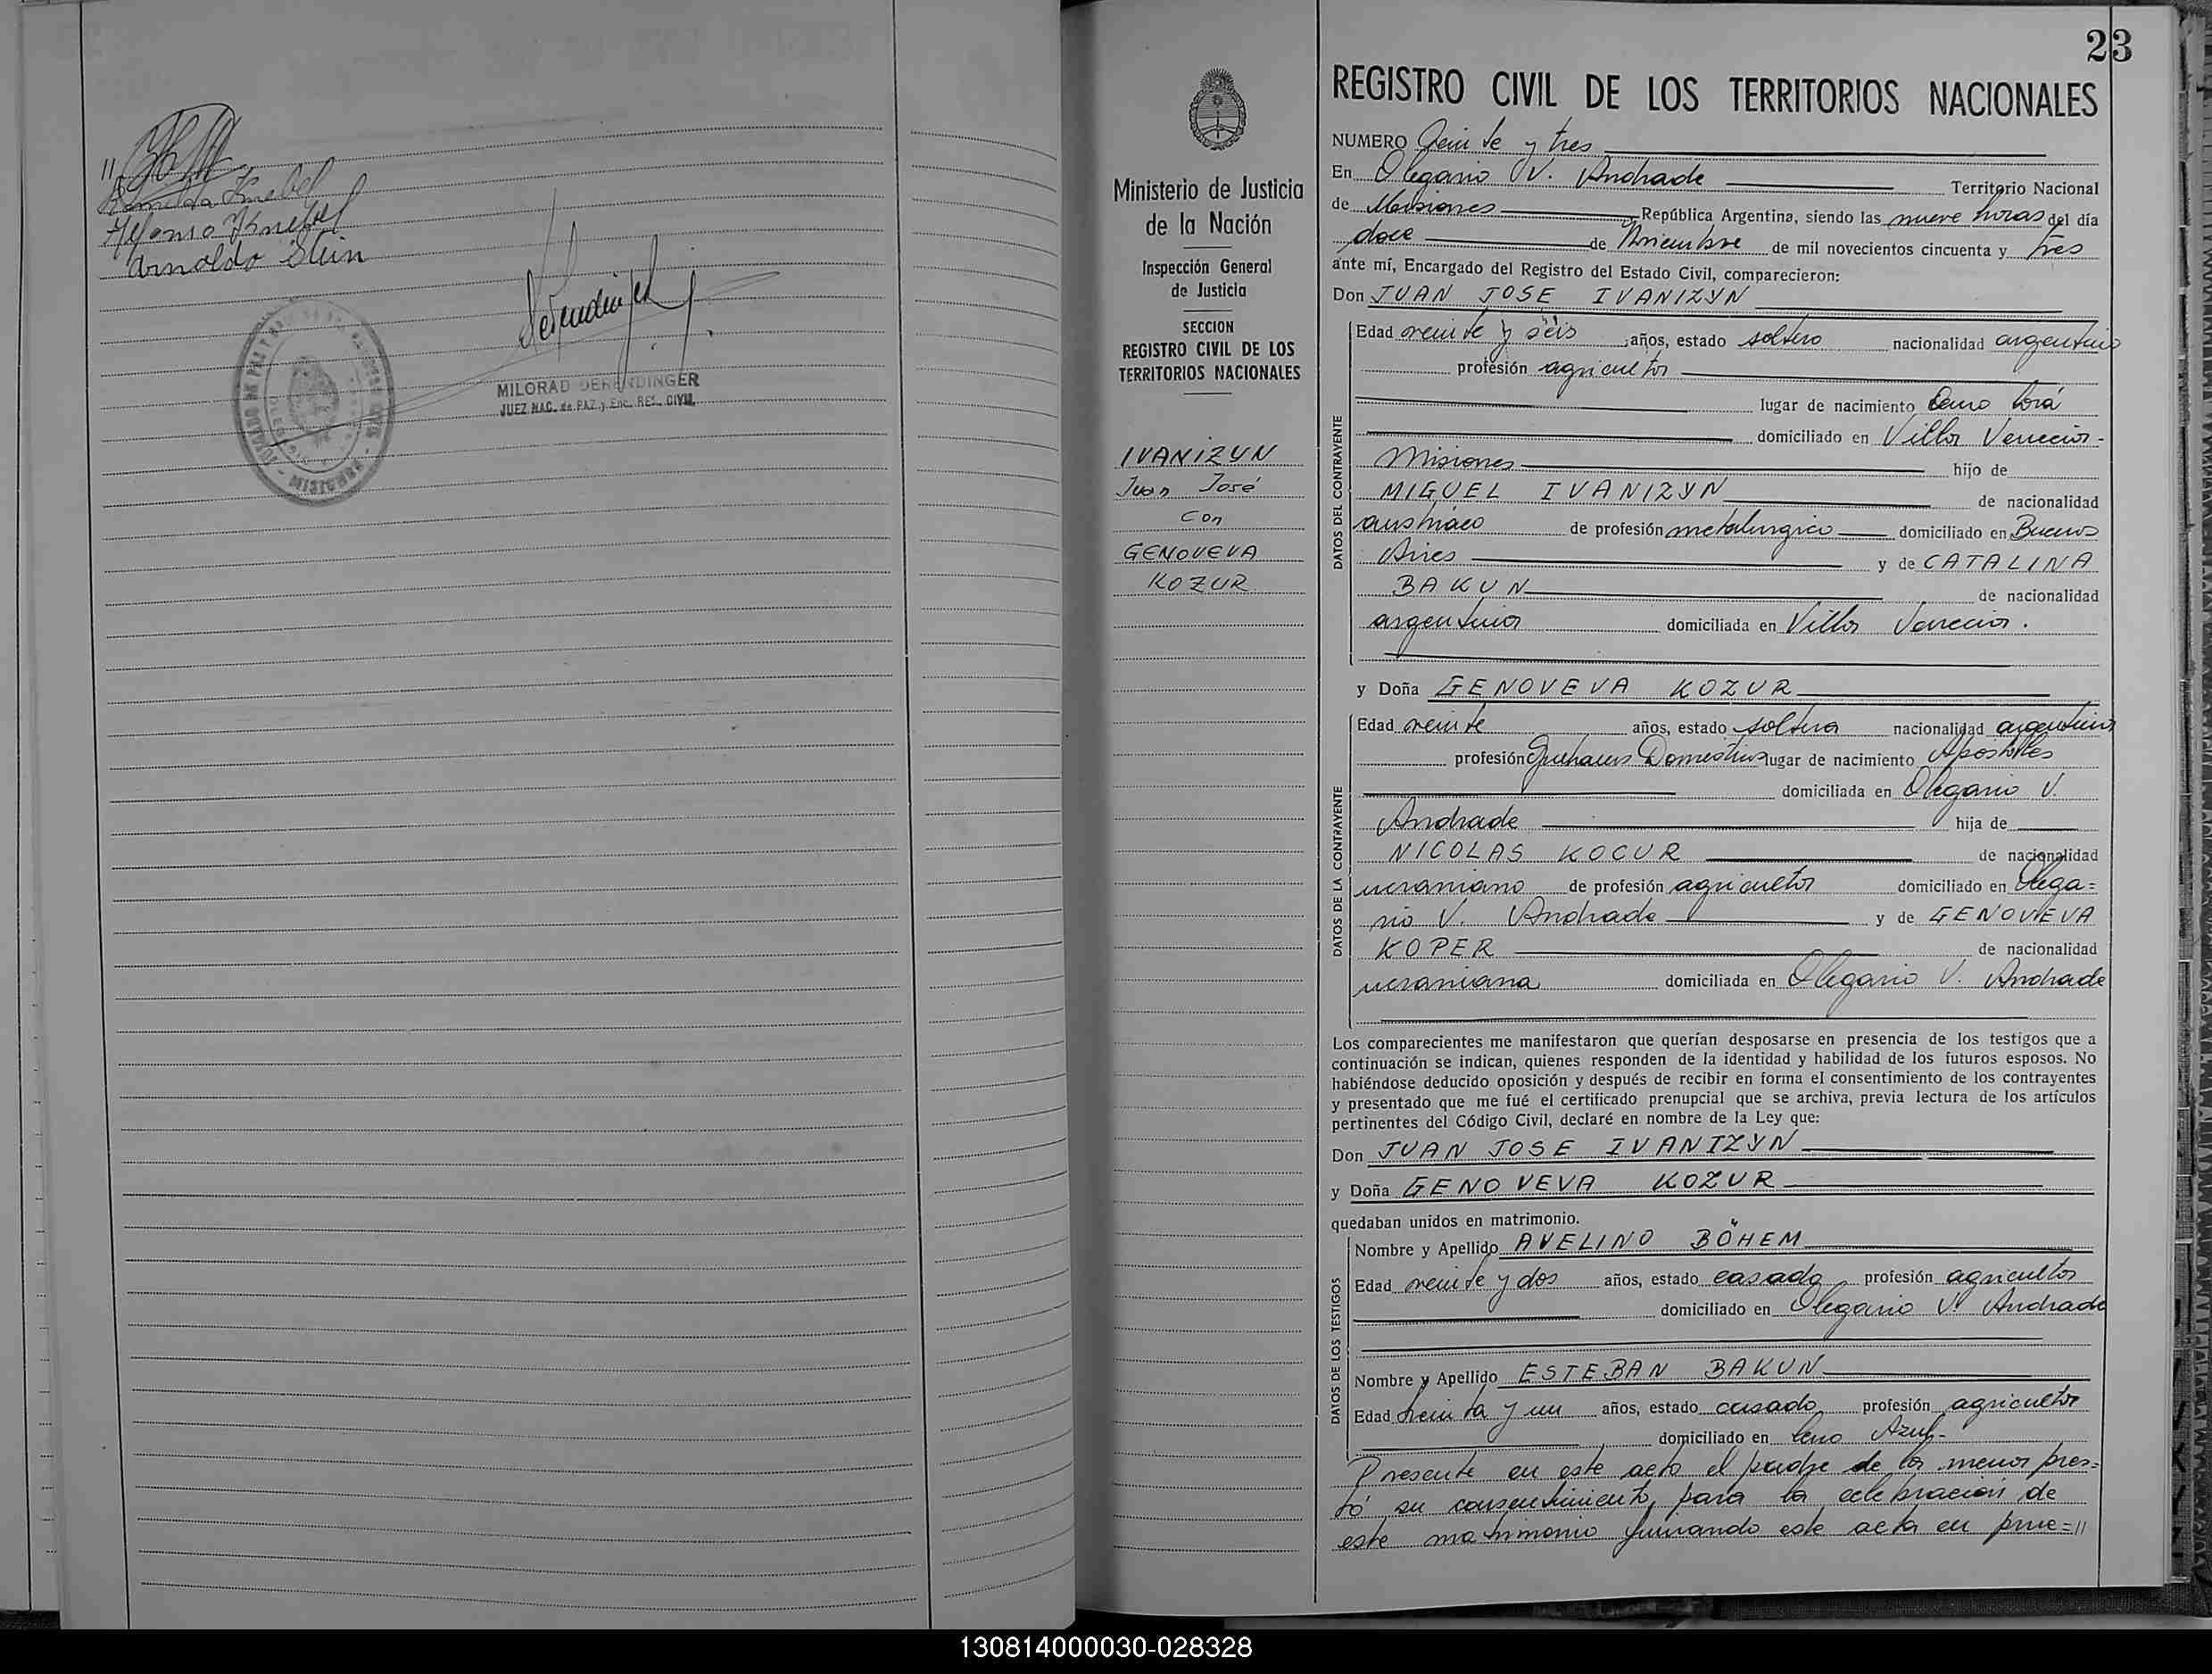 Alfonso Knebel
Arnoldo Stein
MILORAD DERENDINGER
JUEZ NAC. de PAZ y Enc. REG. CIVIL
23
Ministerio de Justicia
de la Nación
Inspección General
de Justicia
SECCION
REGISTRO CIVIL DE LOS
TERRITORIOS NACIONALES
IVANIZYN
Juan José
con
GENOVEVA
KOZUR
REGISTRO CIVIL DE LOS TERRITORIOS NACIONALES
NUMERO Veinte y tres
En Olegario V. Andrade Territorio Nacional
de Misiones República Argentina, siendo las nueve horas del día
doce de mil novecientos cincuenta y tres
ante mí, Encargado del Registro del Estado Civil, comparecieron:
Don JUAN JOSE IVANIZYN
DATOS DEL CONTRAYENTE
Edad veinte y séis años, estado soltero nacionalidad argentino
profesión agricultor
lugar de nacimiento Cerro Corá
domiciliado en Villa Venecia-
Misiones hijo de
MIGUEL IVANIZYN de nacionalidad
austriaco de profesión metalurgico domiciliado en Buenos
Aires y de CATALINA
BAKUN de nacionalidad
argentina domiciliada en Villa Venecia.
y Doña GENOVEVA KOZUR
DATOS DE LA CONTRAYENTE
Edad veinte años, estado soltera nacionalidad argentina
profesión Quehaceres Domesticos lugar de nacimiento Apostoles
domiciliada en Olegario V.
Andrade hija de
NICOLAS KOCUR de nacionalidad
ucraniano de profesión agricultor domiciliado en Olega=
rio V. Andrade y de GENOVEVA
KOPER de nacionalidad
ucraniana domiciliada en Olegario V. Andrade
Los comparecientes me manifestaron que querían desposarse en presencia de los testigos que a
continuación se indican, quienes responden de la identidad y habilidad de los futuros esposos. No
habiéndose deducido oposición y después de recibir en forma el consentimiento de los contrayentes
y presentado que me fué el certificado prenupcial que se archiva, previa lectura de los artículos
pertinentes del Código Civil, declaré en nombre de la Ley que:
Don JUAN JOSE IVANIZYN
y Doña GENOVEVA KOZUR
quedaban unidos en matrimonio.
DATOS DE LOS TESTIGOS
Nombre y Apellido AVELINO BÖHEM
Edad veinte y dos años, estado casado profesión agricultor
domiciliado en Olegario V. Andrade
Nombre y Apellido ESTEBAN BAKUN
Edad treinta y un años, estado casado profesión agricultor
domiciliado en Cerro Azul-
Presente en este acto el padre de la menor pres=
tó su consentimiento, para la celebracion de
este matrimonio firmando este acta en prue=//
130814000030-028328